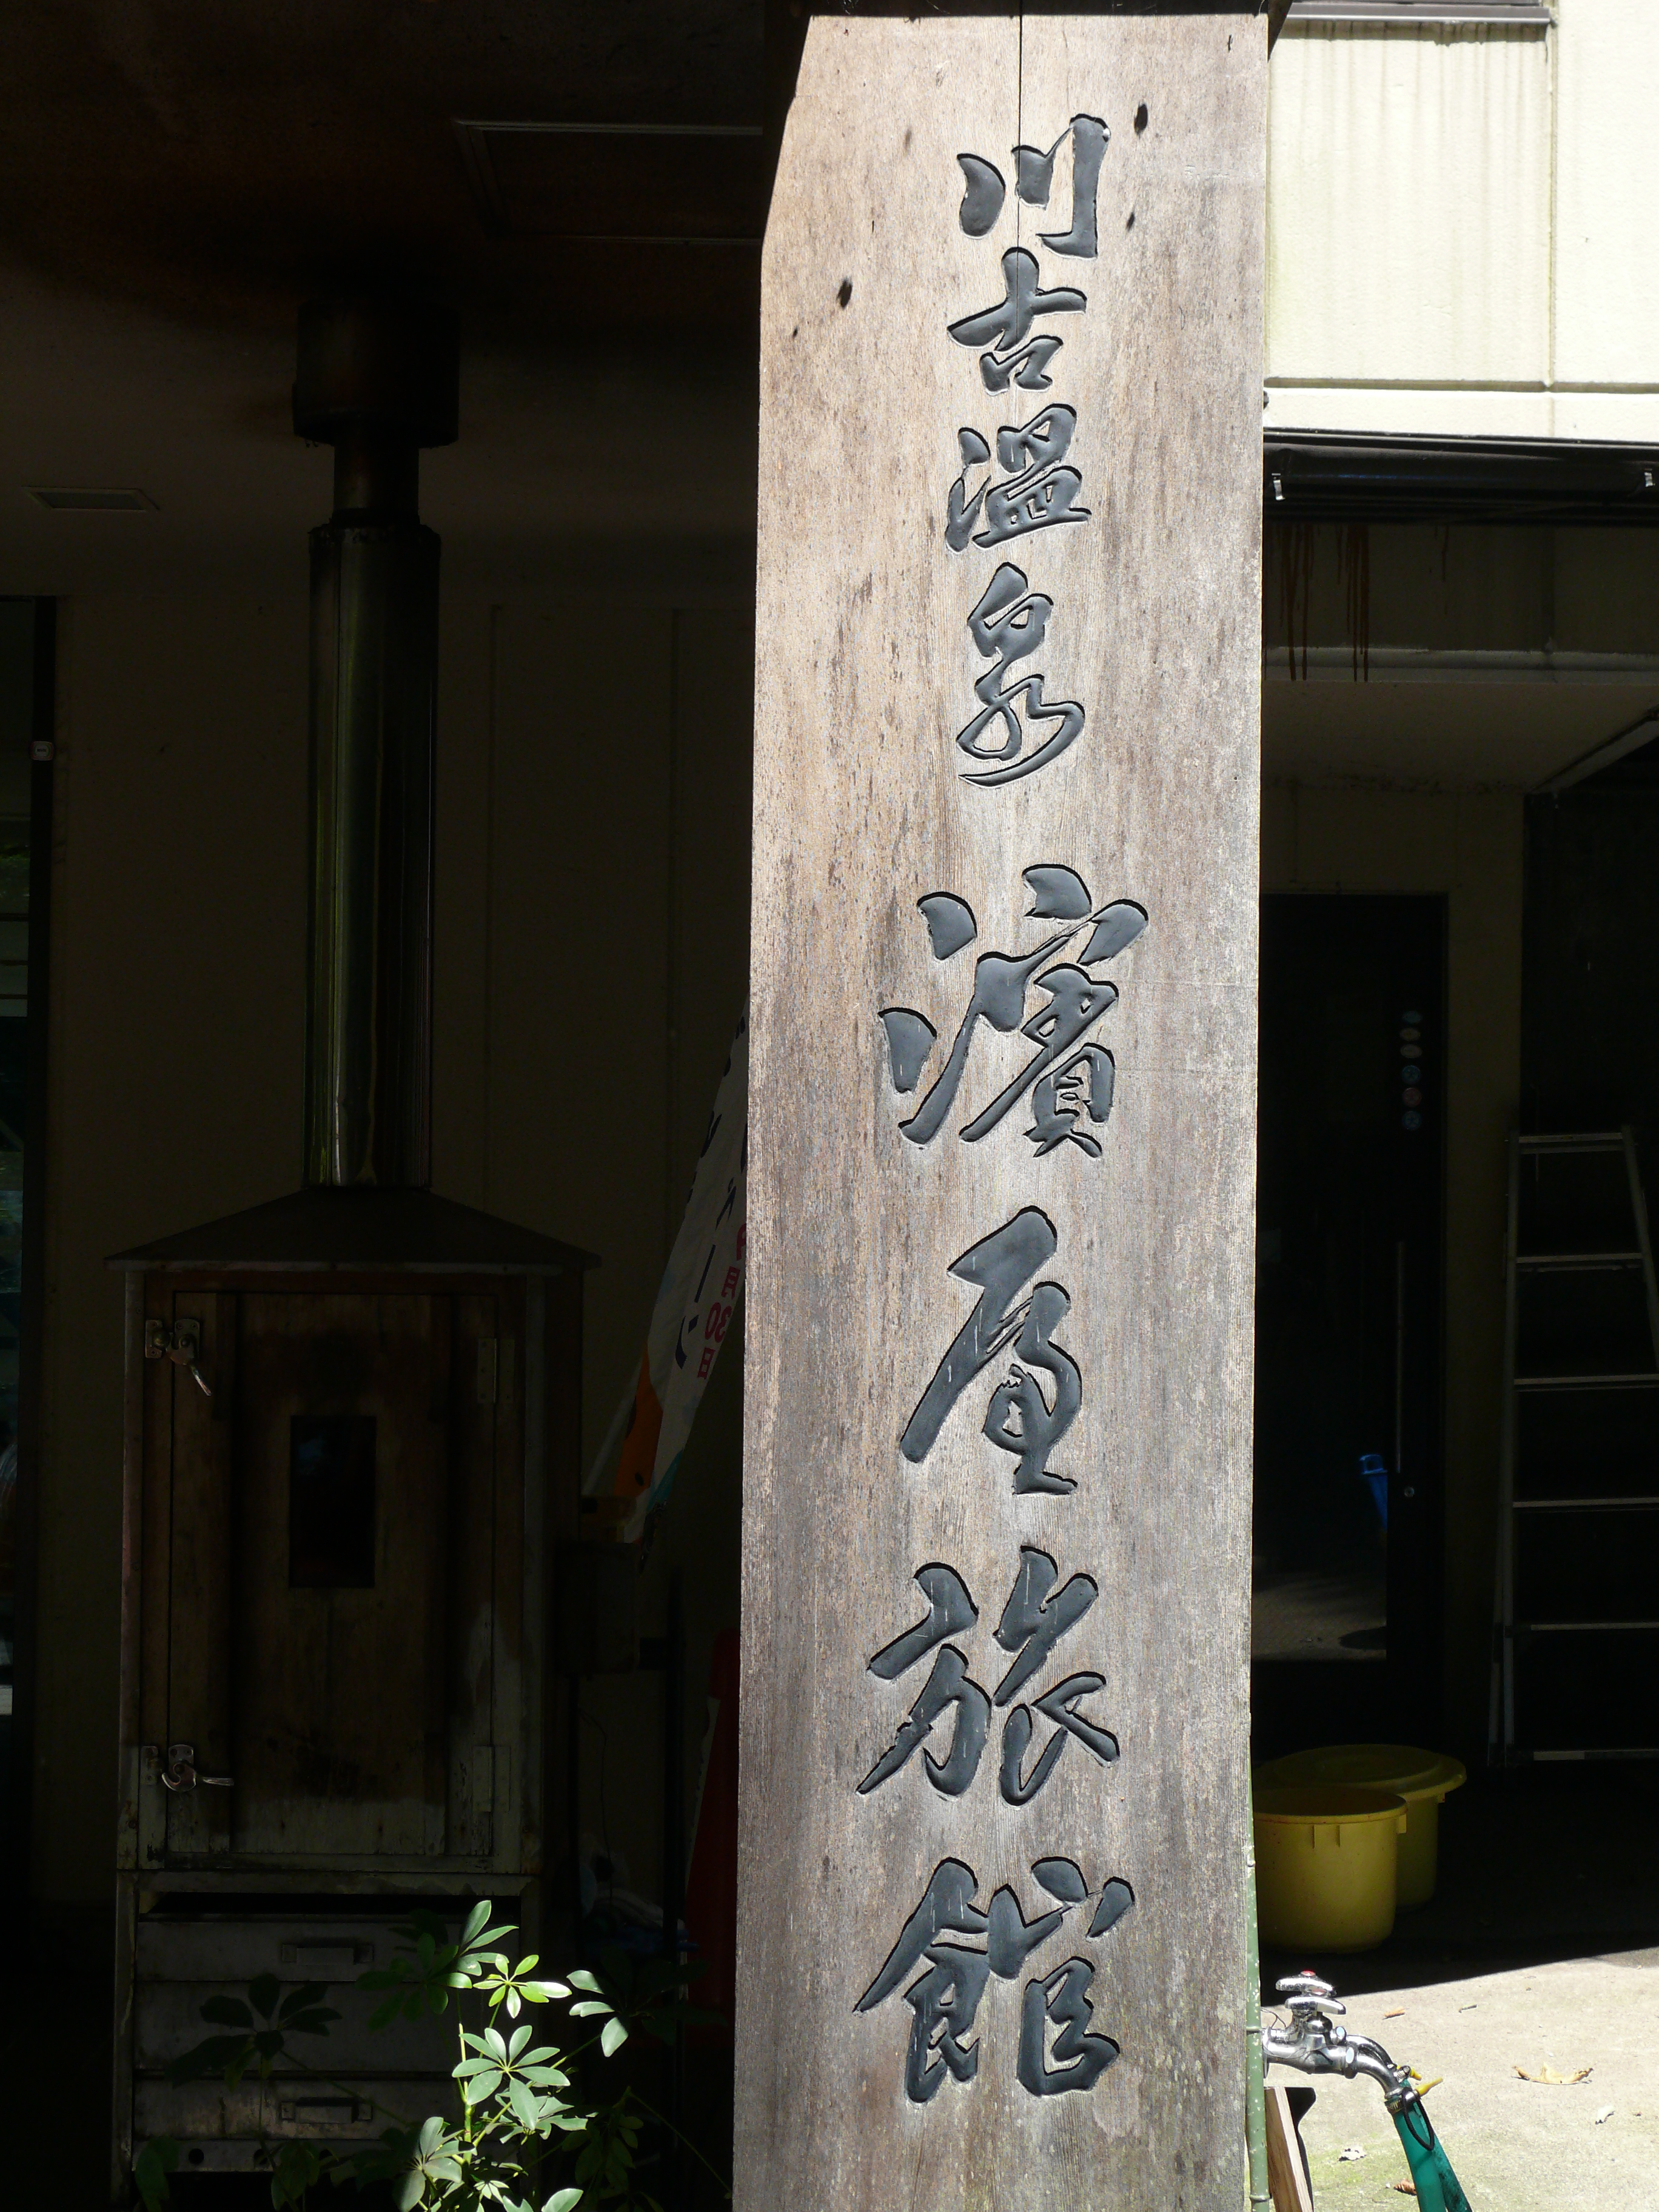 川古温泉 濱屋旅館